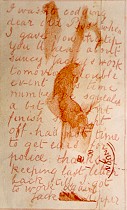 I was not codding
dear old Boss when
I gave you the tip
you'll hear about
Saucy Jacky's work
tomorrow double
event this time
number one squealed
a bit couldn't
finish straight
off. had not time
to get ears for
police thanks for
keeping last letter
back till I got
to work again
Jack the Ripper